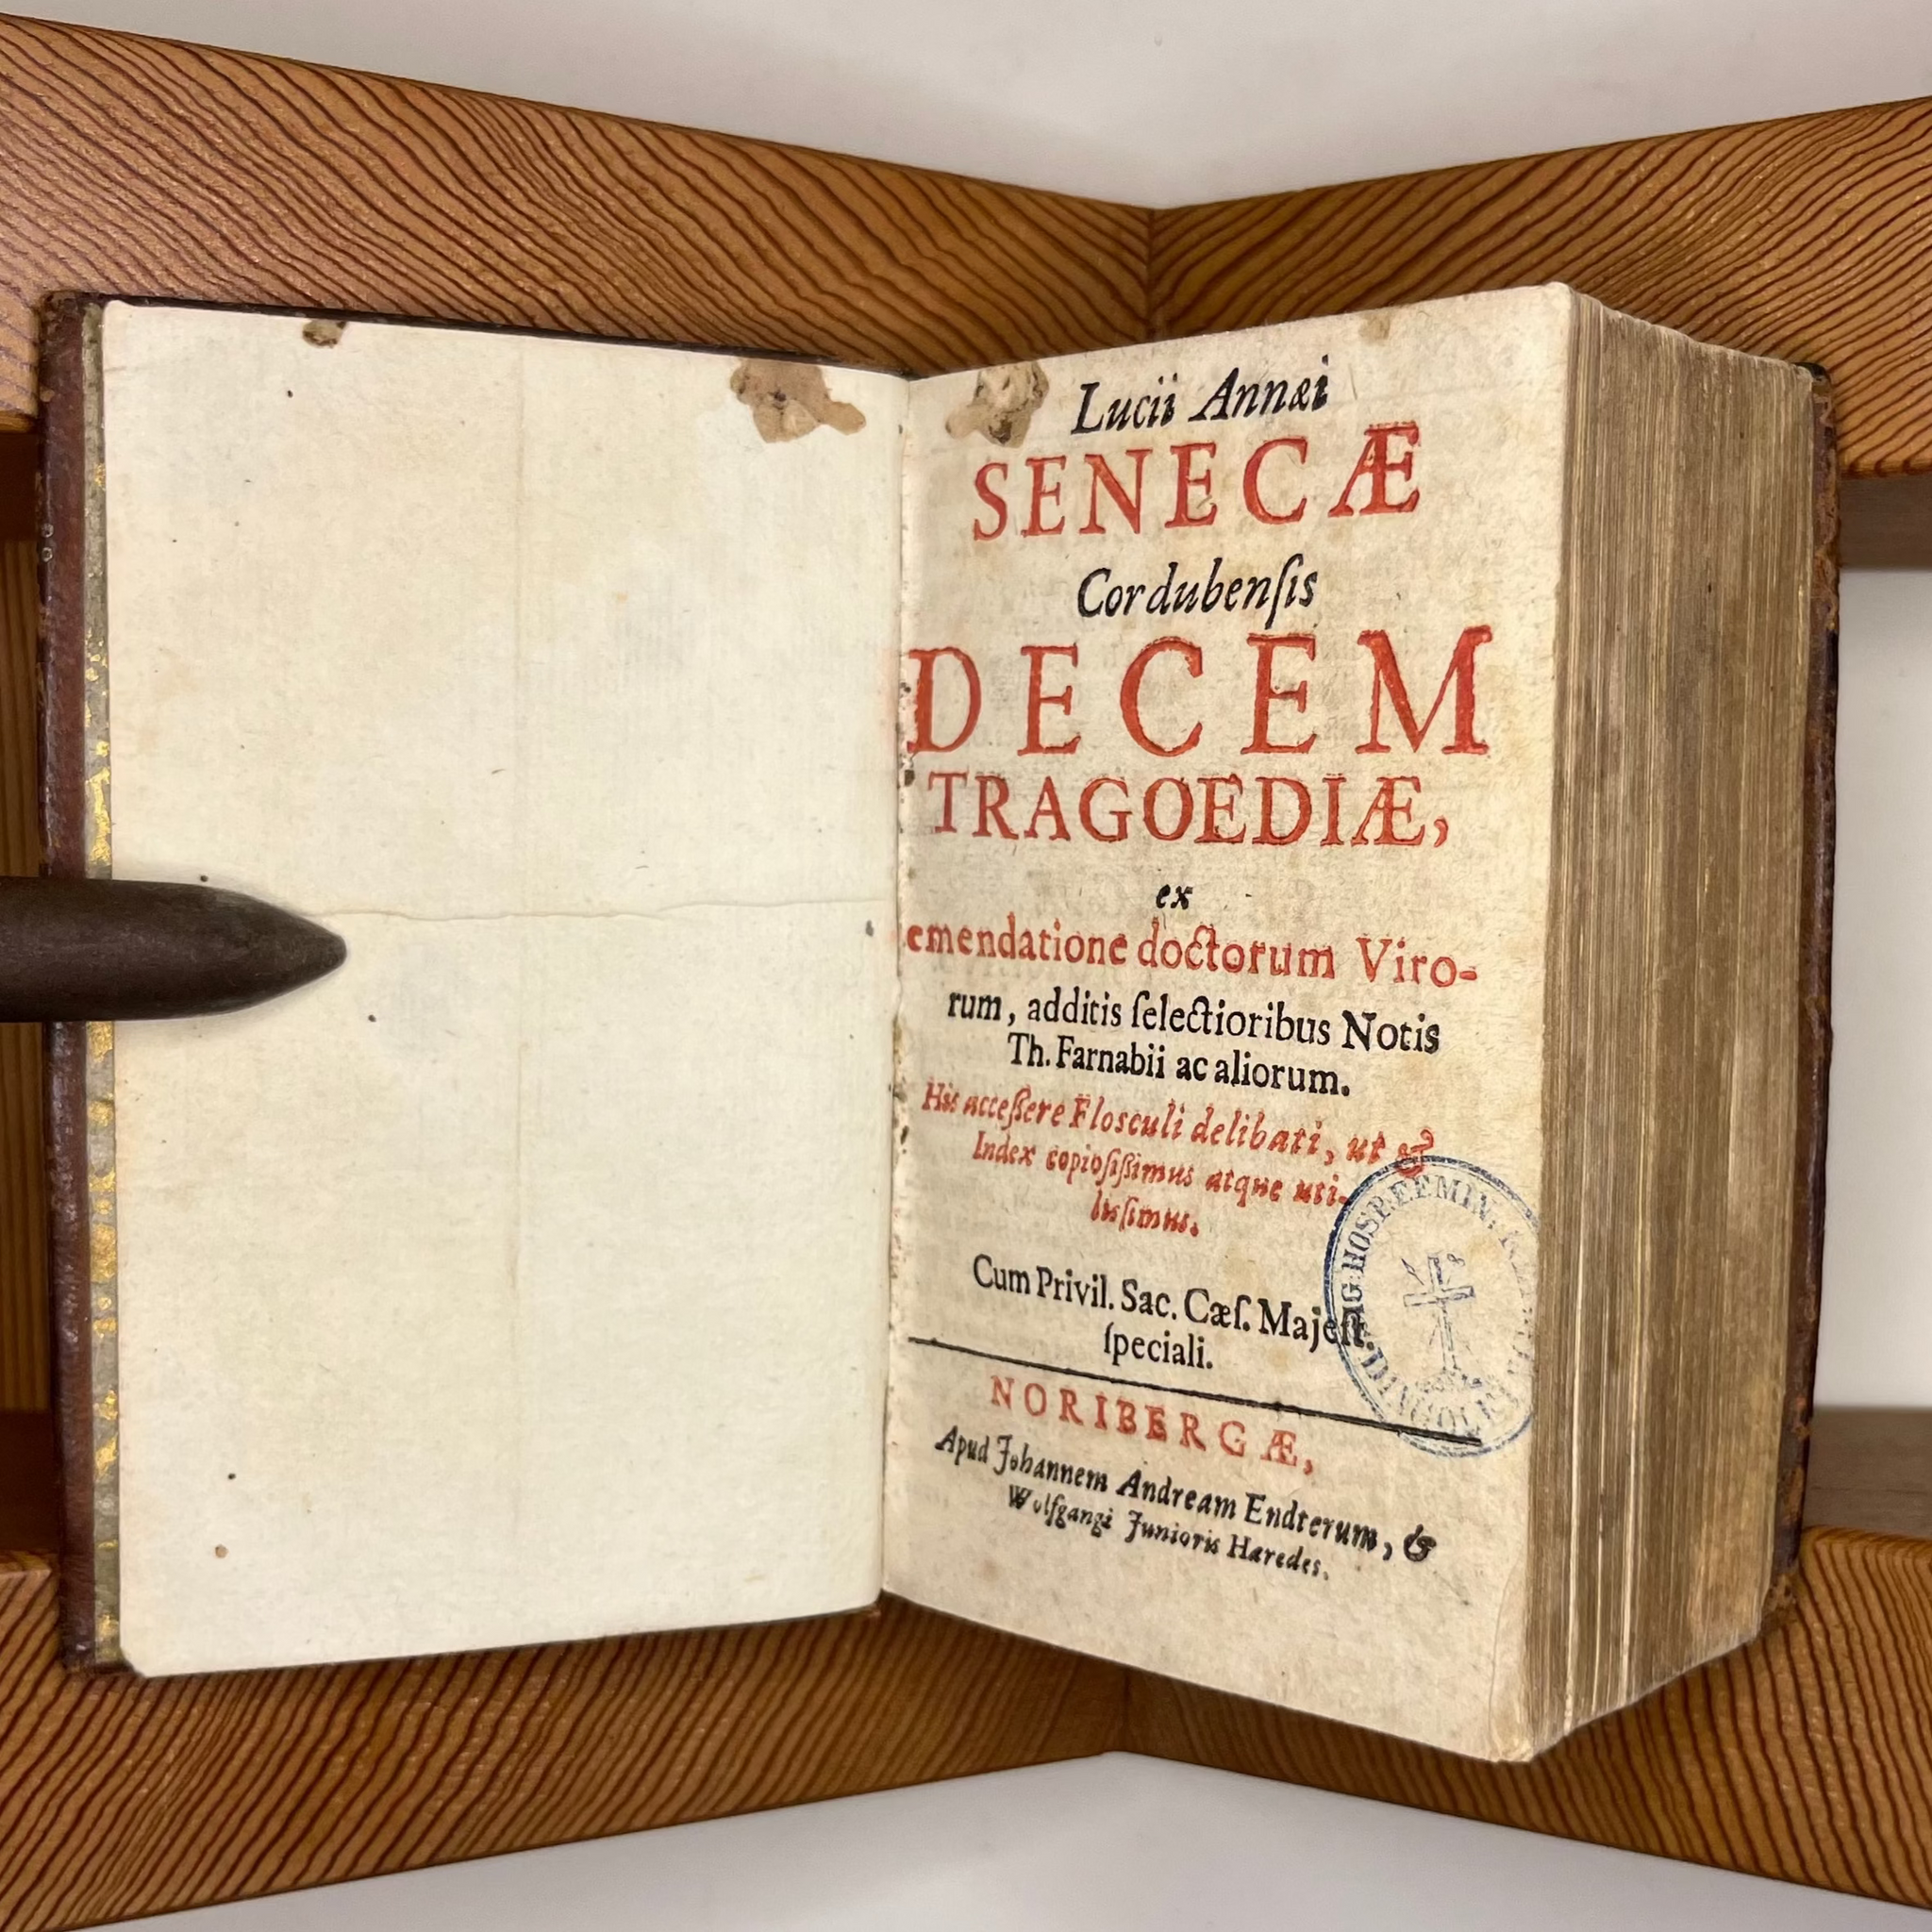 Lucii Annæi
SENECÆ
Cordubenſis
DECEM
TRAGOEDIÆ,
ex
emendatione doctorum Viro-
rum, additis ſelectioribus Notis
Th. Farnabii ac aliorum.
His acceſſere Floſculi delibati, ut &
Index copioſiſſimus atque uti-
liſſimus.
Cum Privil. Sac. Cæſ. Majeſt.
ſpeciali.
NORIBERGÆ,
Apud Johannem Andream Endterum, &
Wolfgangi Junioris Hæredes.
HOSP. EEMIN.